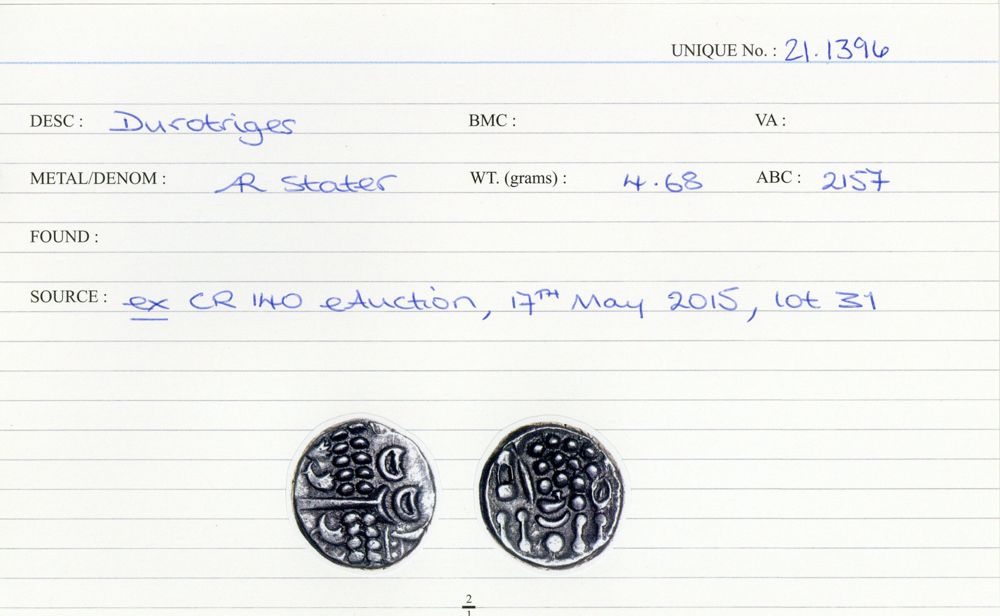 UNIQUE No. : 21.1396
DESC : Durotriges BMC : VA :
METAL/DENOM : AR Stater WT. (grams) : 4.68 ABC : 2157
FOUND :
SOURCE : ex CR 140 eAuction, 17TH May 2015, lot 31
2
1